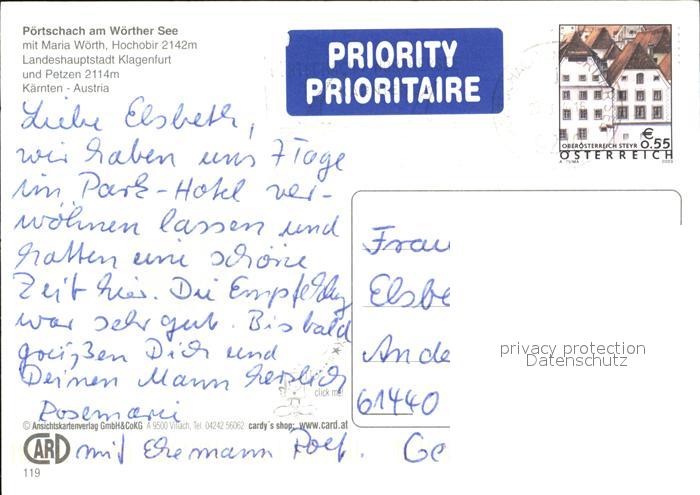 Pörtschach am Wörther See
mit Maria Wörth, Hochobir 2142m
Landeshauptstadt Klagenfurt
und Petzen 2114m
Kärnten - Austria
PRIORITY
PRIORITAIRE
€ 0.55
OBERÖSTERREICH STEYR
ÖSTERREICH
A. TUMA 2003
Liebe Elsbeth,
wir haben uns 7 Tage
im Park-Hotel ver-
wöhnen lassen und
hatten eine schöne
Zeit hier. Die Empfehlg
war sehr gut. Bis bald
grüßen Dich und
Deinen Mann herzlich
Rosemarie
mit Ehemann Rolf.
Frau
Elsbe
Ande
61440
Ge
privacy protection
Datenschutz
click me!
© Ansichtskartenverlag GmbH&CoKG A 9500 Villach, Tel. 04242 56062 cardy´s shop: www.card.at
CARD
119